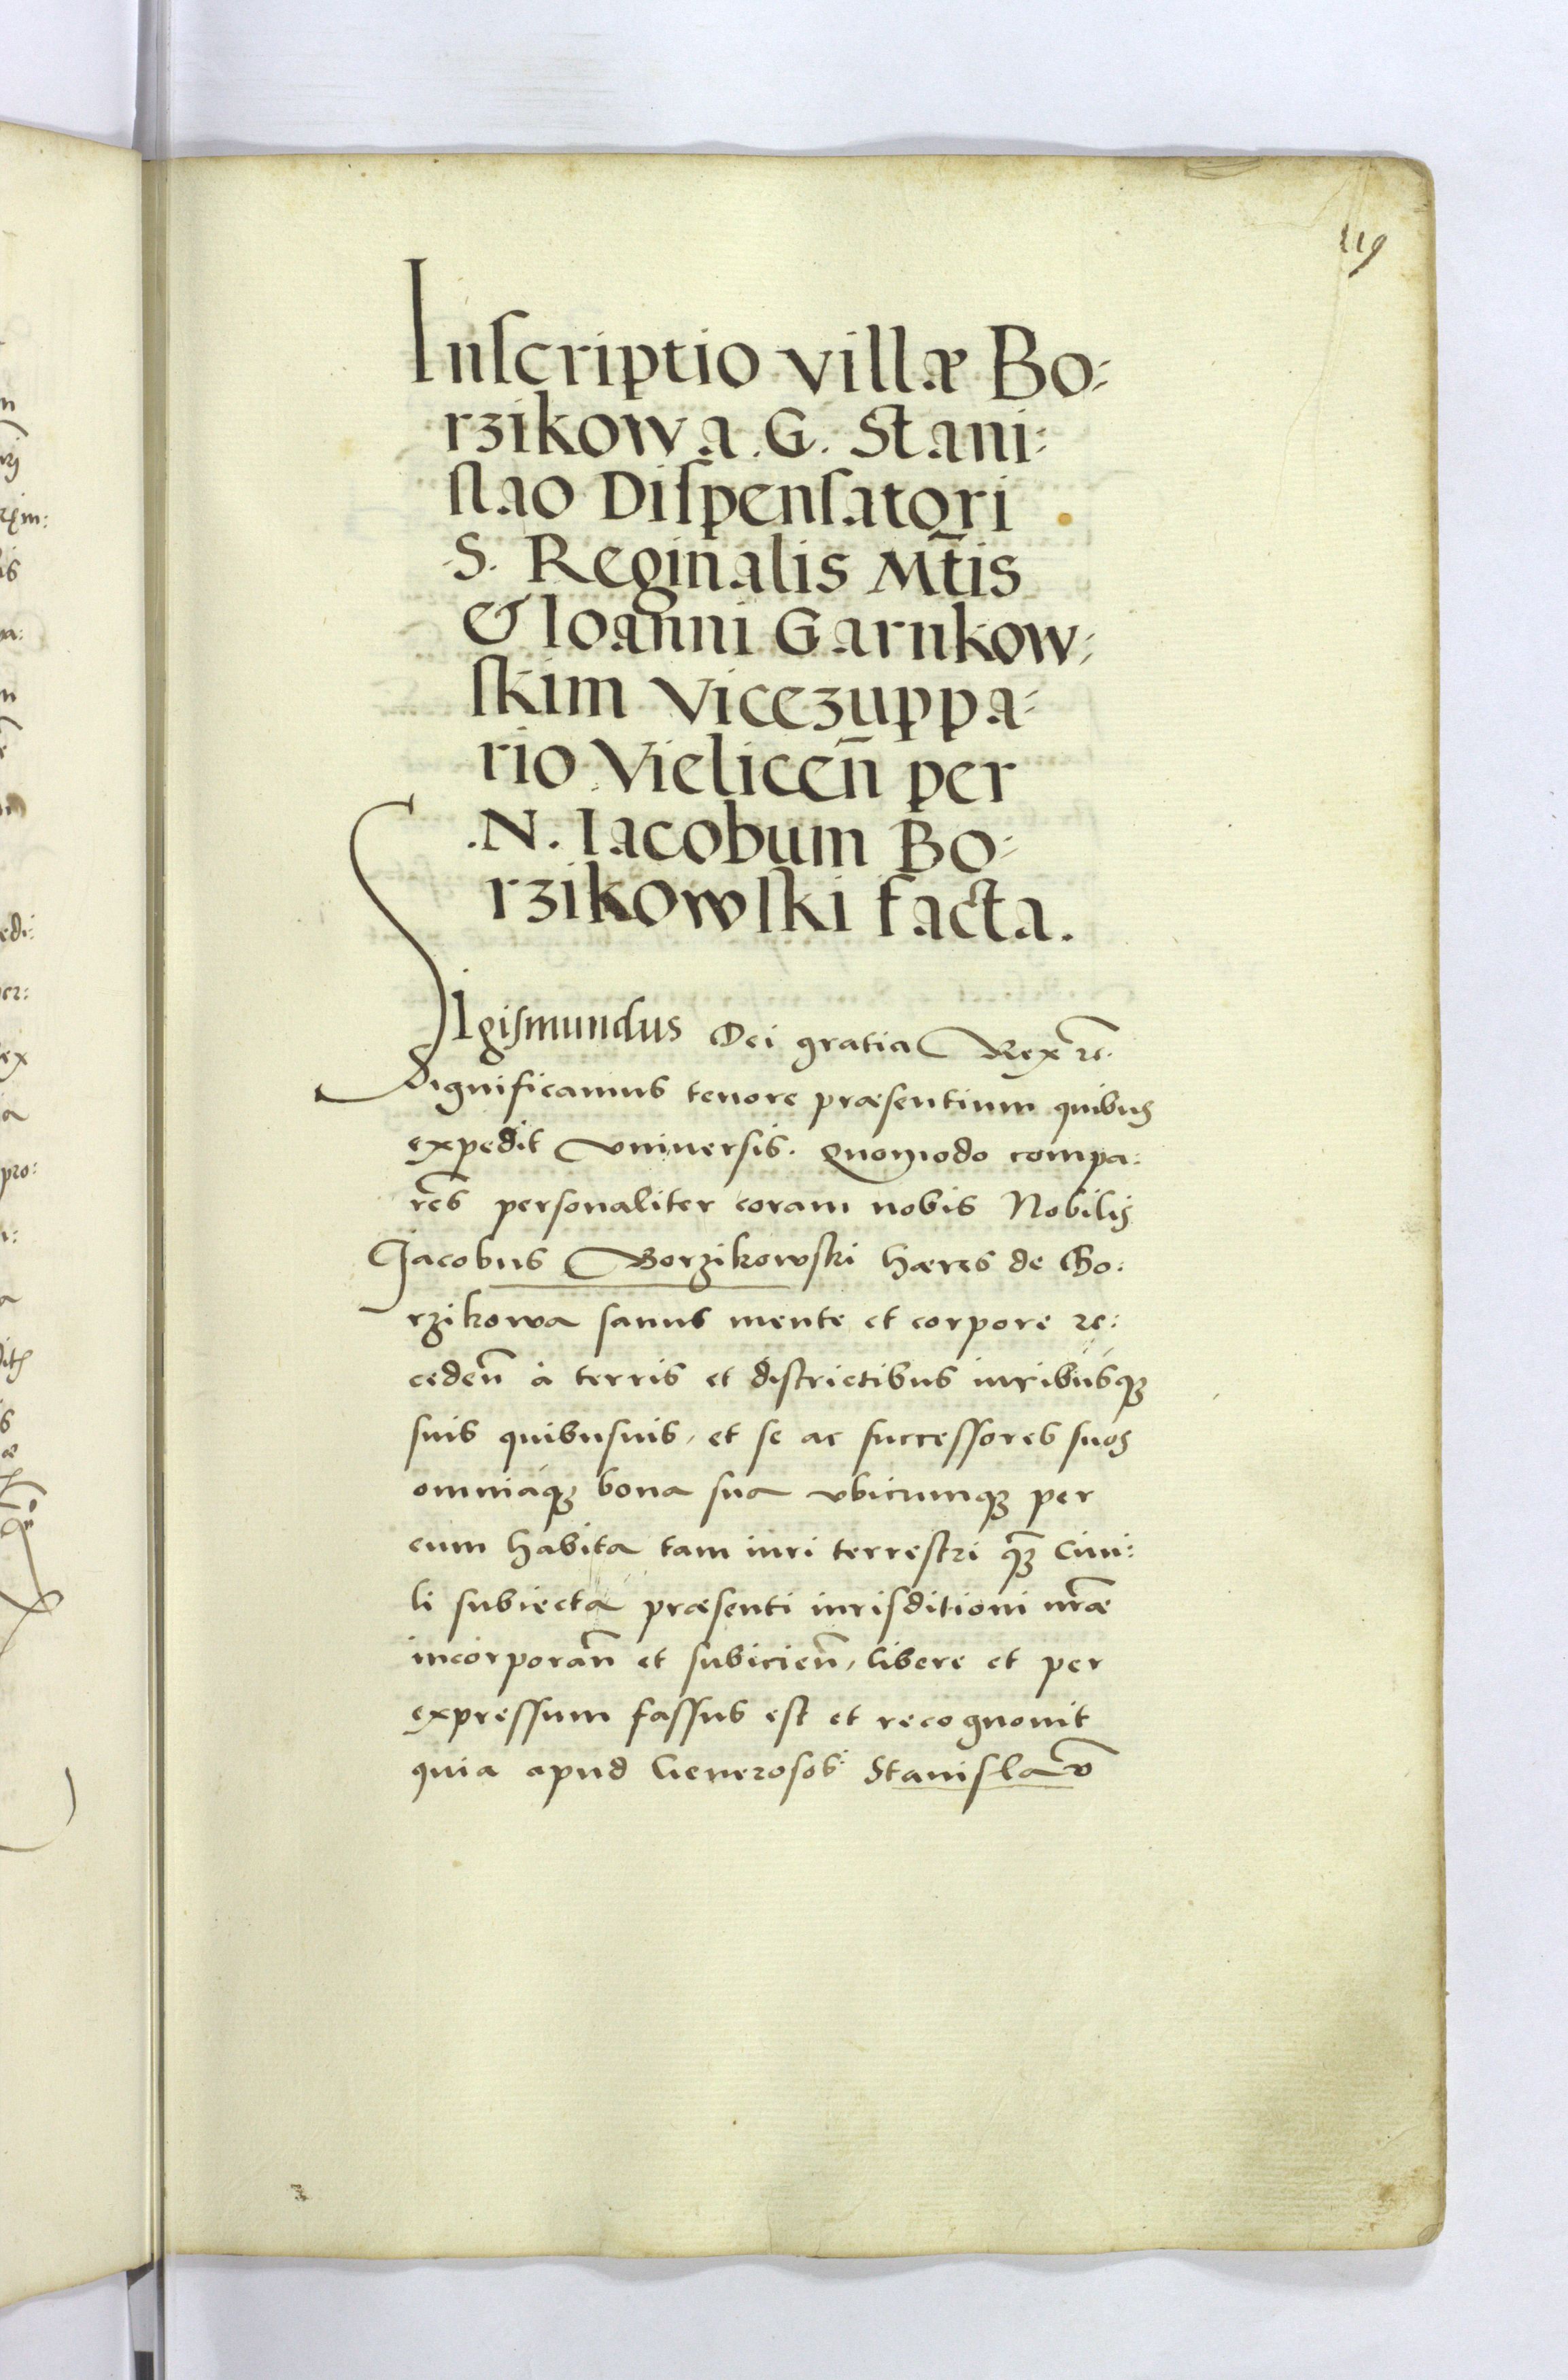 119
Inscriptio villæ Bo:
rzikowa .G. Stani:
slao Dispensatori
.S. Reginalis Mt̃is
& Ioanni Garnkow:
skim Vicezuppa:
rio Vielicen̄ per
.N. Iacobum Bo:
rzikowski facta.
Sigismundus Dei gratia Rex ꝛc̃.
Significamus tenore præsentium quibus
expedit vniuersis. Quomodo compa:
rẽs personaliter coram nobis Nobilis
Jacobus Borzikowski hæres de Bo:
rzikowa sanus mente et corpore re:
ceden̄ à terris et districtibus iuribusqꝫ
suis quibusuis, et se ac successores suos
omniaqꝫ bona sua vbicumqꝫ per
eum habita tam iuri terrestri qꝫ̃ Ciui:
li subiecta præsenti iurisditioni nr̃æ
incorporan̄ et subicien̄, libere et per
expressum fassus est et recognouit
quia apud Generosos Stanislaũ